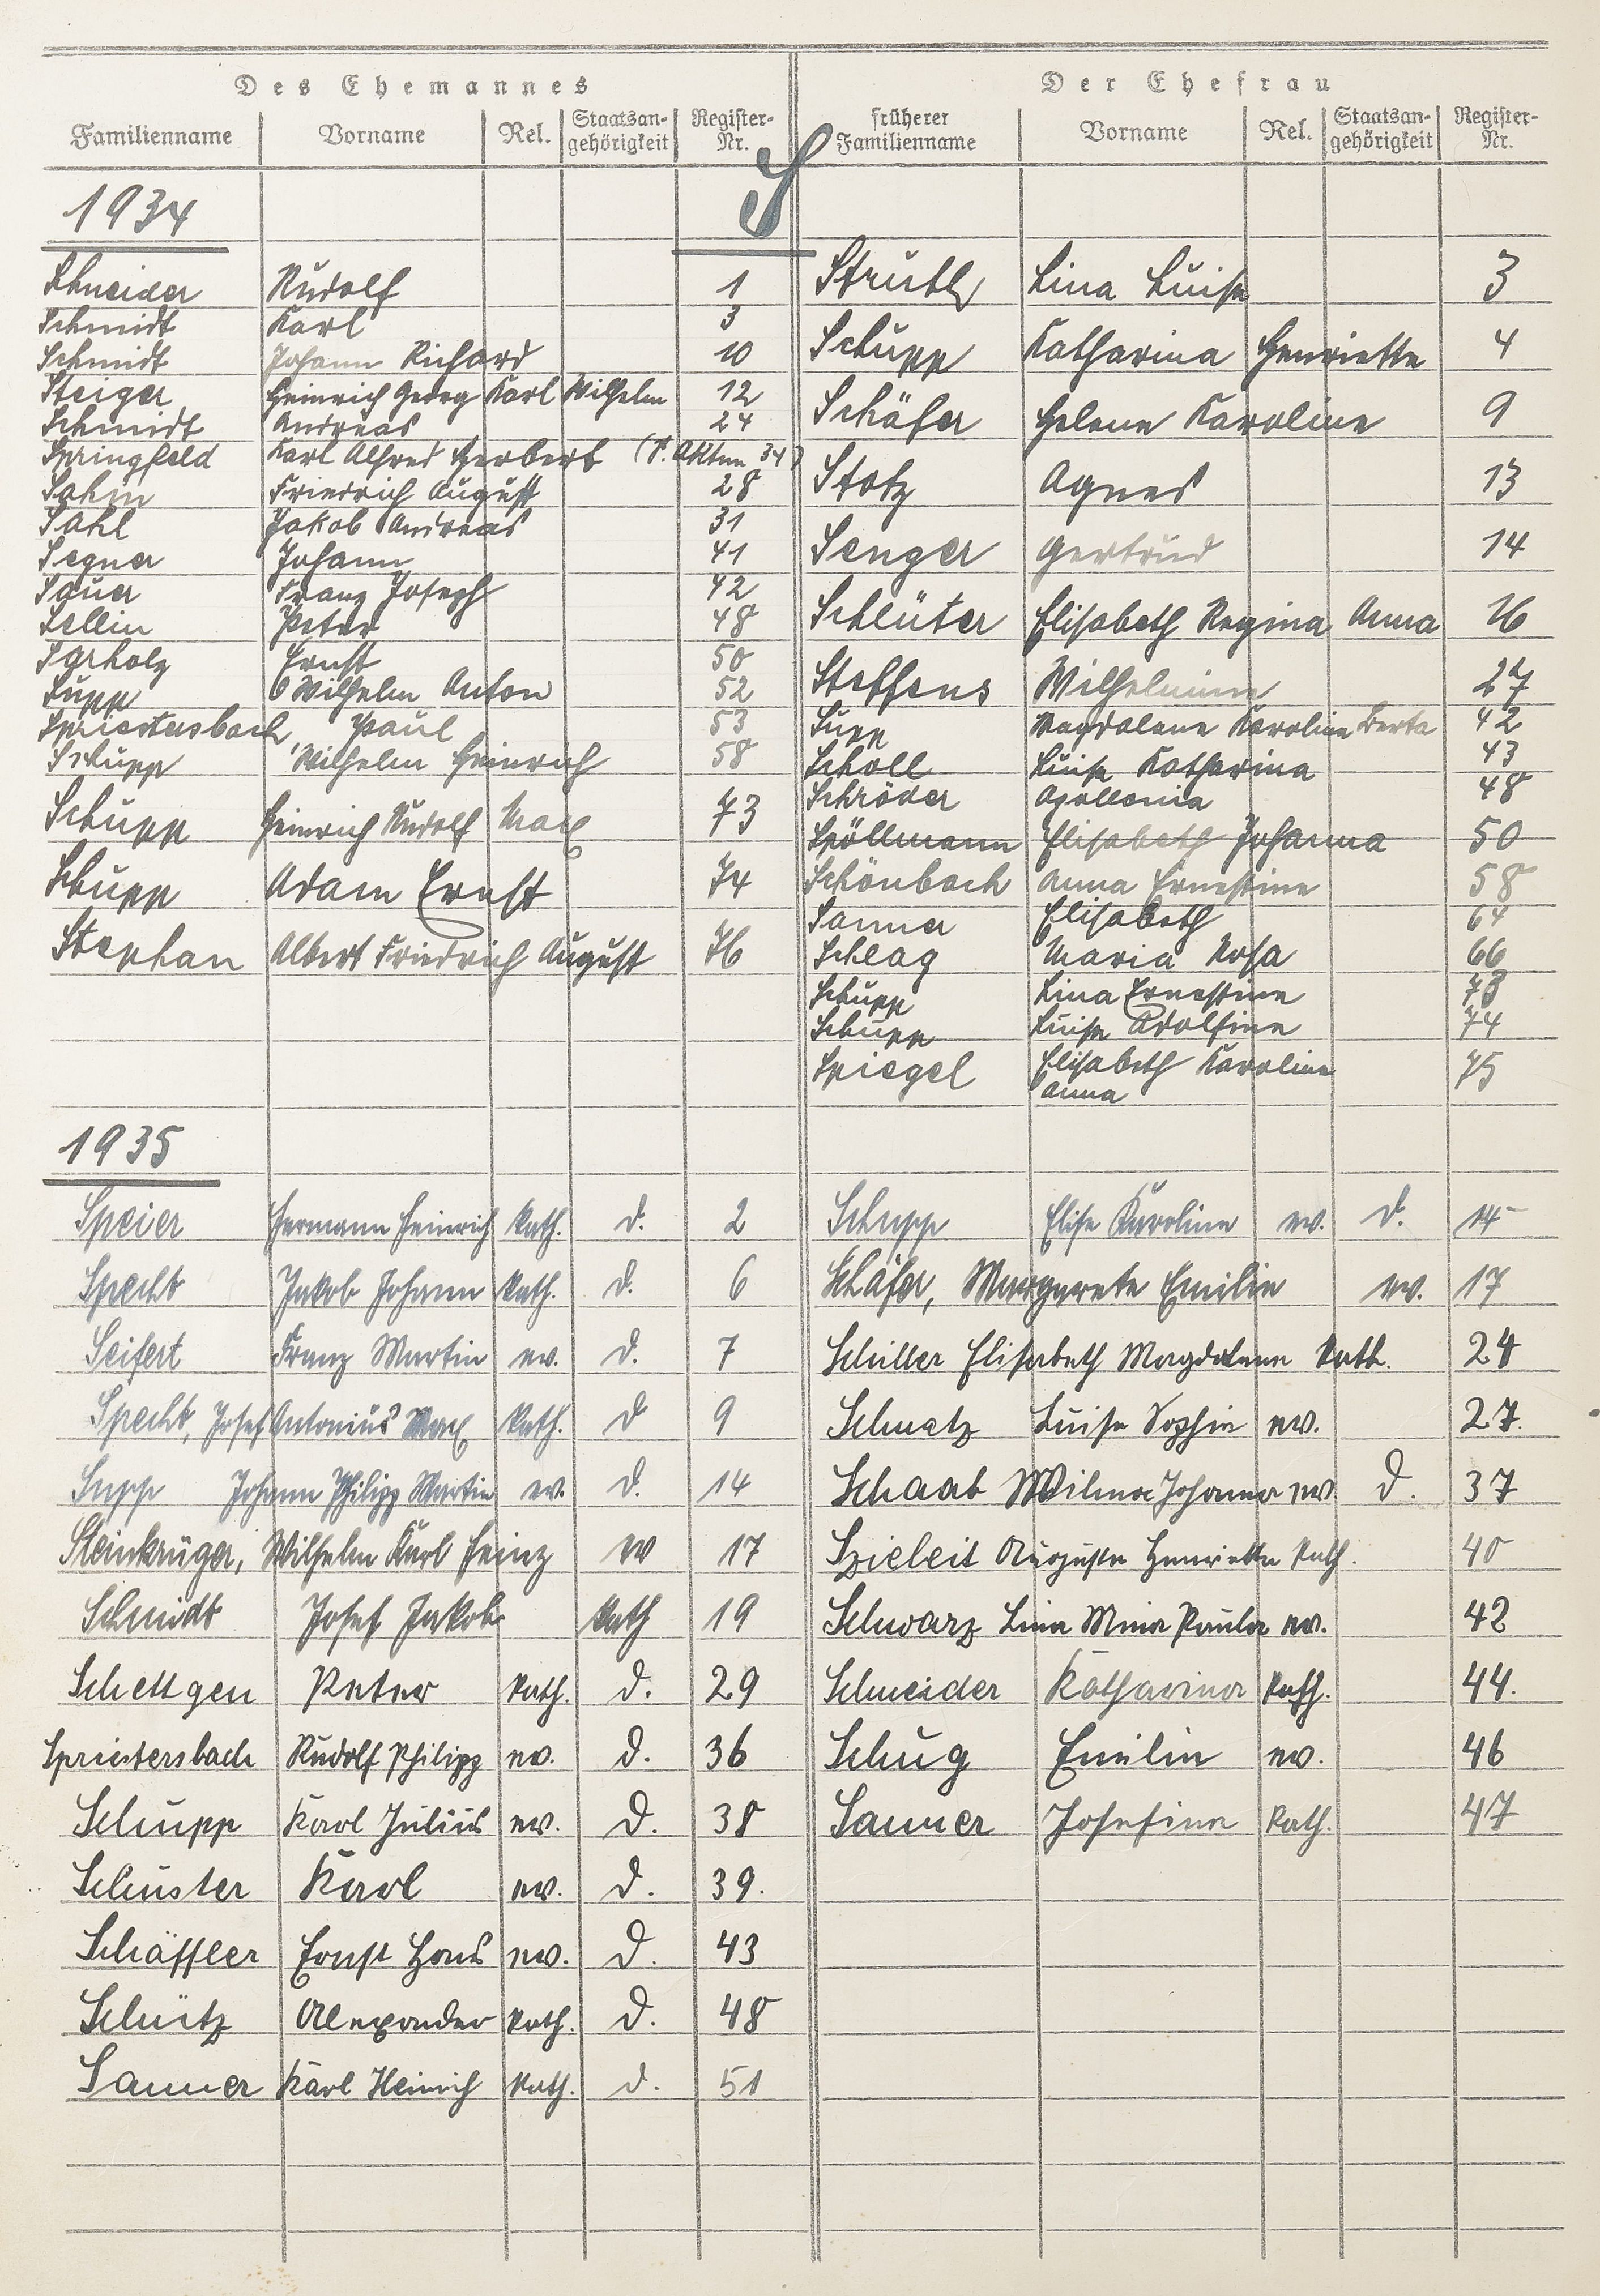 Des Ehemannes
Familienname Vorname Rel. Staatsangehörigkeit Register-Nr.
S
1934
Schneider Rudolf 1
Schmidt Karl 3
Schmidt Johann Richard 10
Steiger Heinrich Georg Karl Wilhelm 12
Schmidt Andreas 24
Springfeld Karl Alfred Herbert (s. Akten 34)
Sahm Friedrich August 28
Sahl Jakob Andreas 31
Segner Johann 41
Sauer Franz Joseph 42
Sellin Peter 48
Sarholz Ernst 50
Supp Wilhelm Anton 52
Spriestersbach Paul 53
Schupp Wilhelm Heinrich 58
Schupp Heinrich Rudolf Max 73
Schupp Adam Ernst 74
Stephan Albert Friedrich August 76
1935
Speier Hermann Heinrich kath. d. 2
Specht Jakob Johann kath. d. 6
Seifert Franz Martin ev. d. 7
Specht, Josef Antonius Max kath. d 9
Supp Johann Philipp Martin ev. d. 14
Steinkrüger, Wilhelm Karl Heinz ev 17
Schmidt Josef Jakob kath 19
Schettgen Peter kath. d. 29
Spriestersbach Rudolf Philipp ev. d. 36
Schupp Karl Julius ev. d. 38
Schuster Karl ev. d. 39.
Schäffler Ernst Hans ev. d. 43
Schütz Alexander kath. d. 48
Sanner Karl Heinrich kath. d. 51
Der Ehefrau
früherer Familienname Vorname Rel. Staatsangehörigkeit Register-Nr.
Struth Lina Luise 3
Schupp Katharina Henriette 4
Schäfer Helene Karoline 9
Stotz Agnes 13
Senger Gertrud 14
Schlüter Elisabeth Regina Anna 16
Steffens Wilhelmine 27
Supp Magdalene Karoline Berta 42
Scholl Luise Katharina 43
Schröder Apollonia 48
Spöllmann Elisabeth Johanna 50
Schönbach Anna Ernestine 58
Sanner Elisabeth 64
Schlag Maria Rosa 66
Schupp Lina Ernestine 73
Schupp Luise Adolfine 74
Spiegel Elisabeth Karoline
Anna 75
Schupp Elise Karoline ev. d. 14
Schäfer, Margarete Emilie ev. 17
Schiller Elisabeth Magdalena kath. 24
Schatz Luise Sophie ev. 27.
Schaab Wilma Johanna ev. d. 37
Szieleit Auguste Henriette kath. 40
Schwarz Lina Mina Paula ev. 42
Schneider Katharina kath. 44.
Schug Emilie ev. 46
Sanner Josefina kath. 47